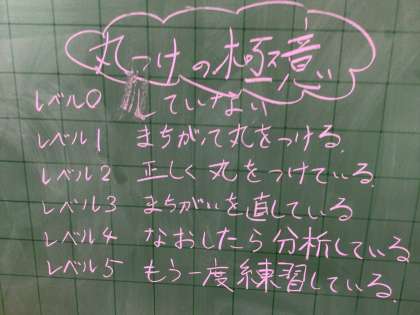 丸つけの極意
レベル0 していない
レベル1 まちがて丸をつける。
レベル2 正しく丸をつけている。
レベル3 まちがいを直している
レベル4 なおしたら分析している
レベル5 もう一度練習している。